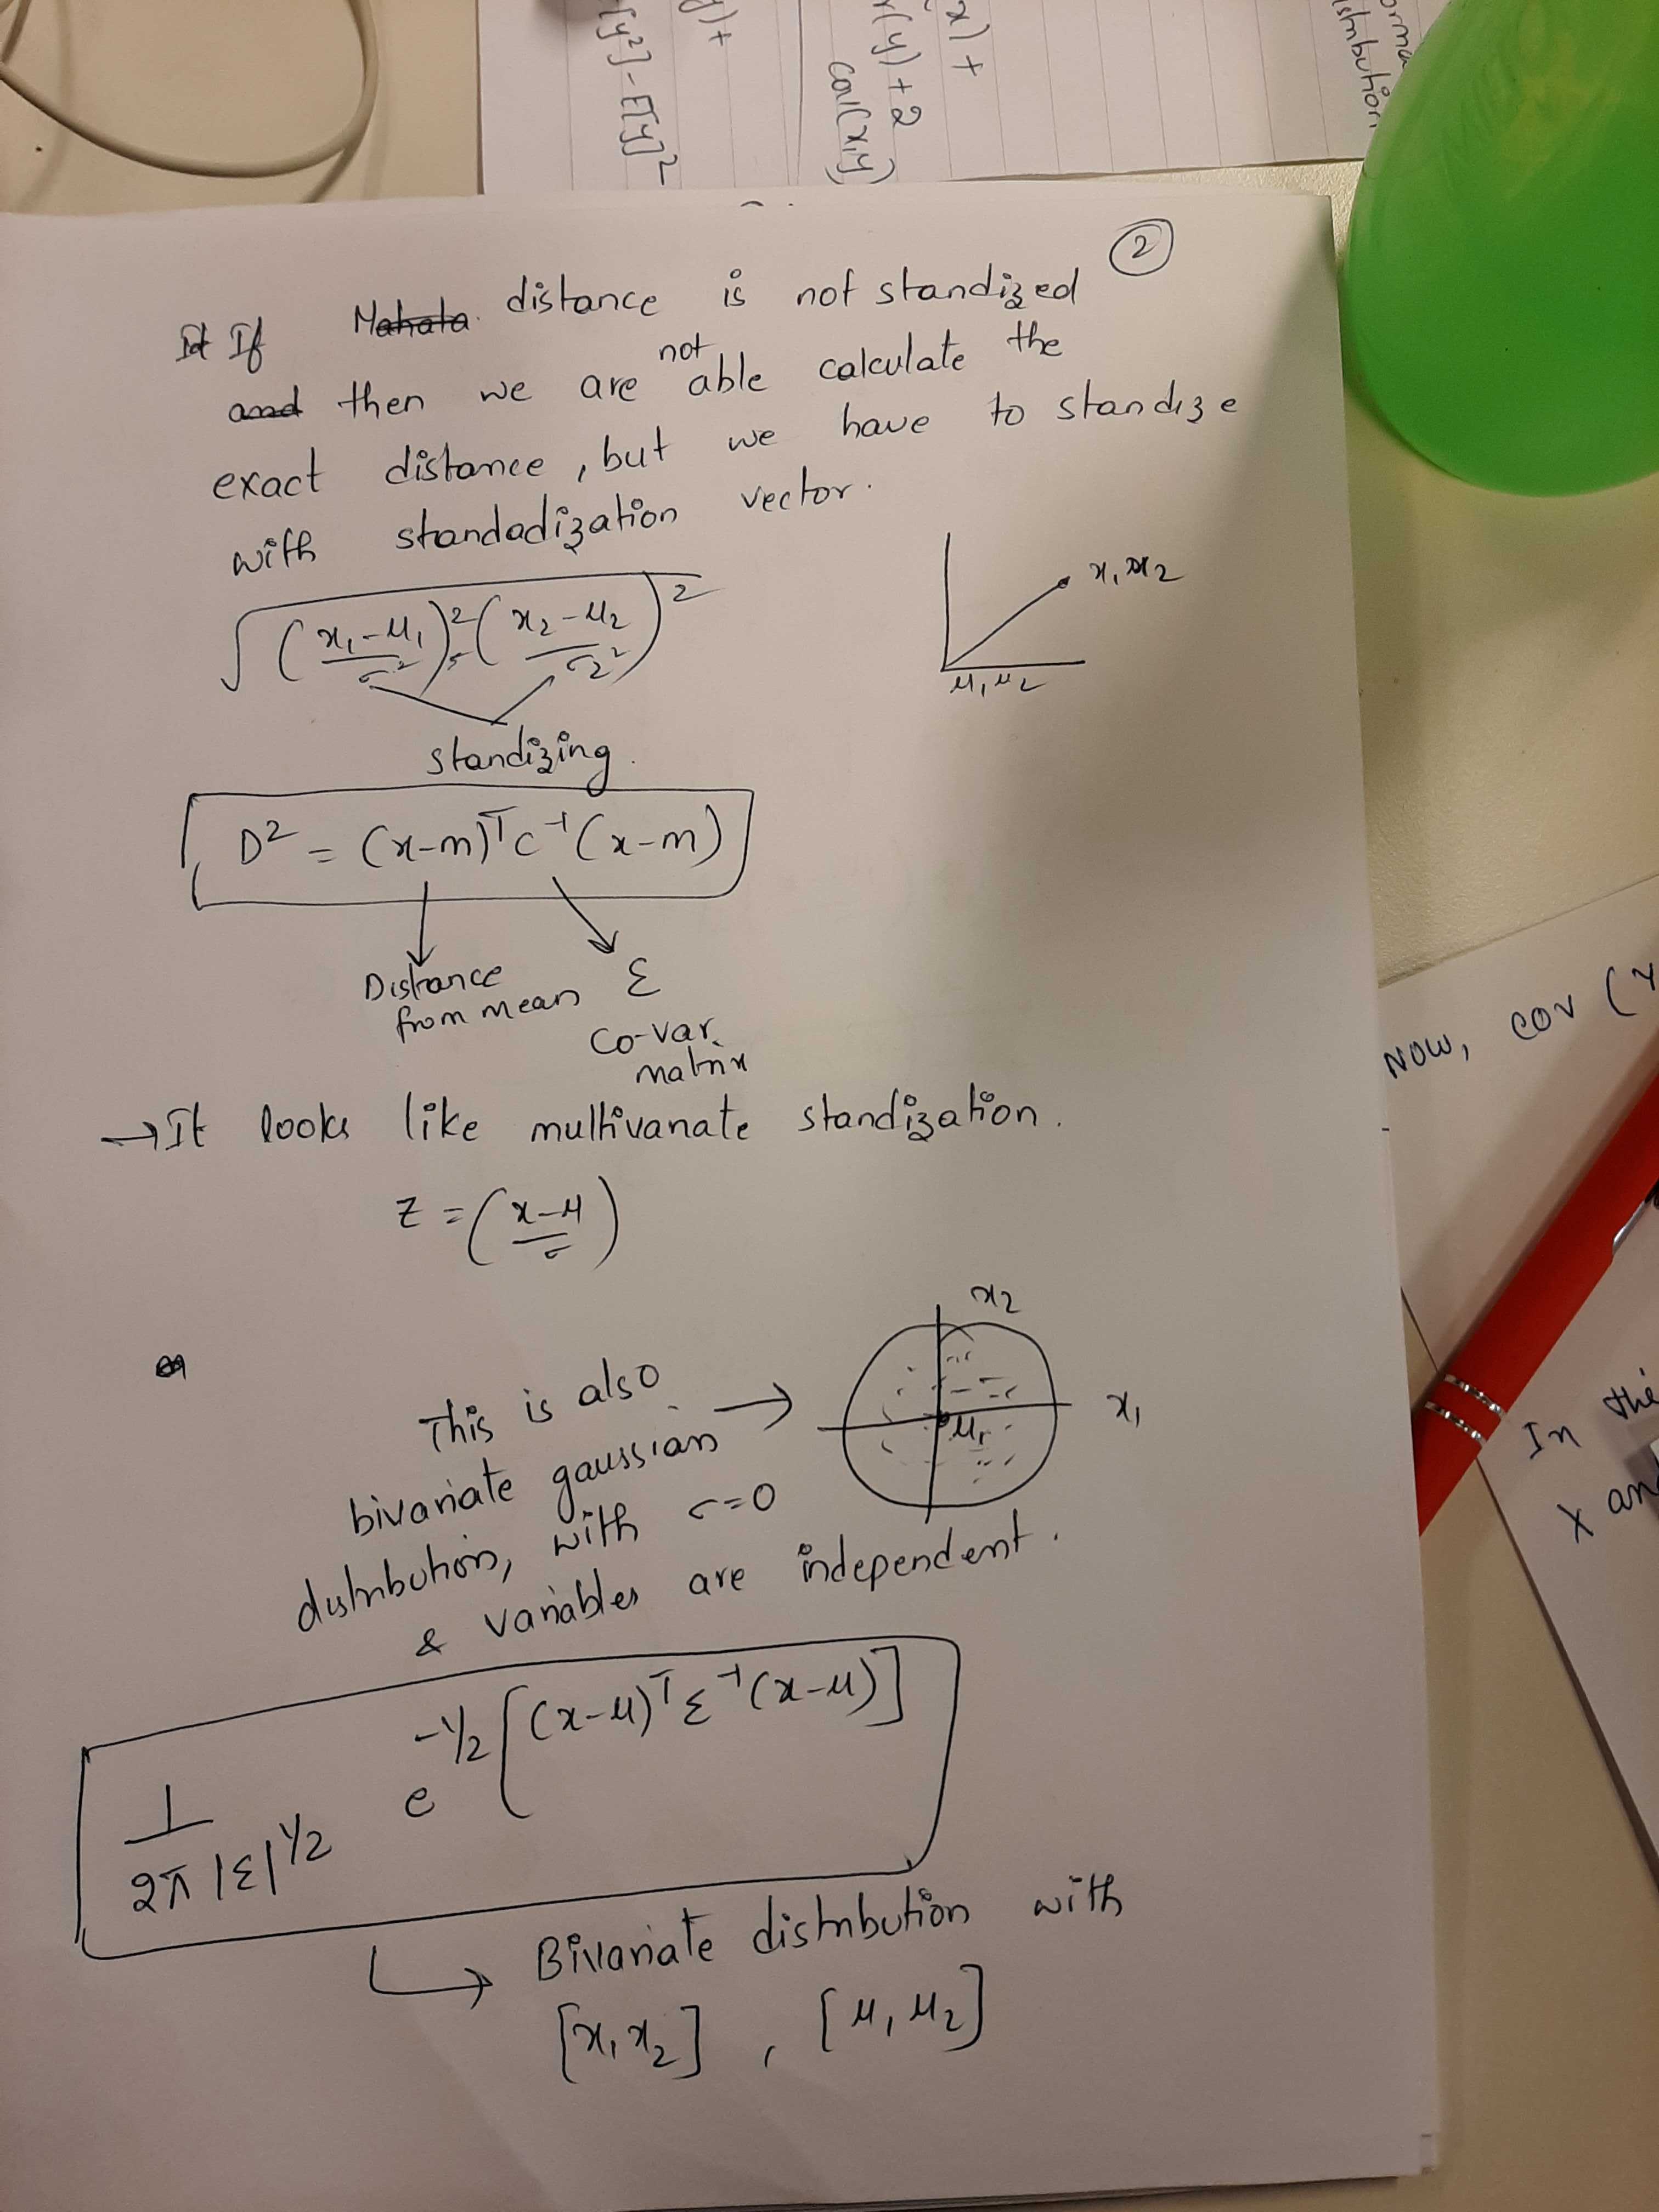 y)+
[y²] - E[y]²
x) +
r(y) + 2
cov(x,y)
orma
istribution
2
It If Mahala. distance is not standized
and then we are not able calculate the
exact distance, but we have to standize
with standadization vector.
√(x₁-μ₁/σ²)² (x₂-μ₂/σ₂²)²
x₁ x₂
μ₁ μ₂
standizing.
D² = (x-m)ᵀ C⁻¹ (x-m)
Distance
from mean
Σ
Co-var.
matrix
Now, cov (
→ It looks like multivariate standization.
z = (x-μ/σ)
x₂
x₁
μ
This is also →
bivariate gaussian
distribution, with σ=0
& variables are independent.
In the
X and
1/2π |Σ|^½ e^-½[(x-μ)ᵀ Σ⁻¹ (x-μ)]
↳ Bivariate distribution with
[x₁ x₂] , [μ₁ μ₂]